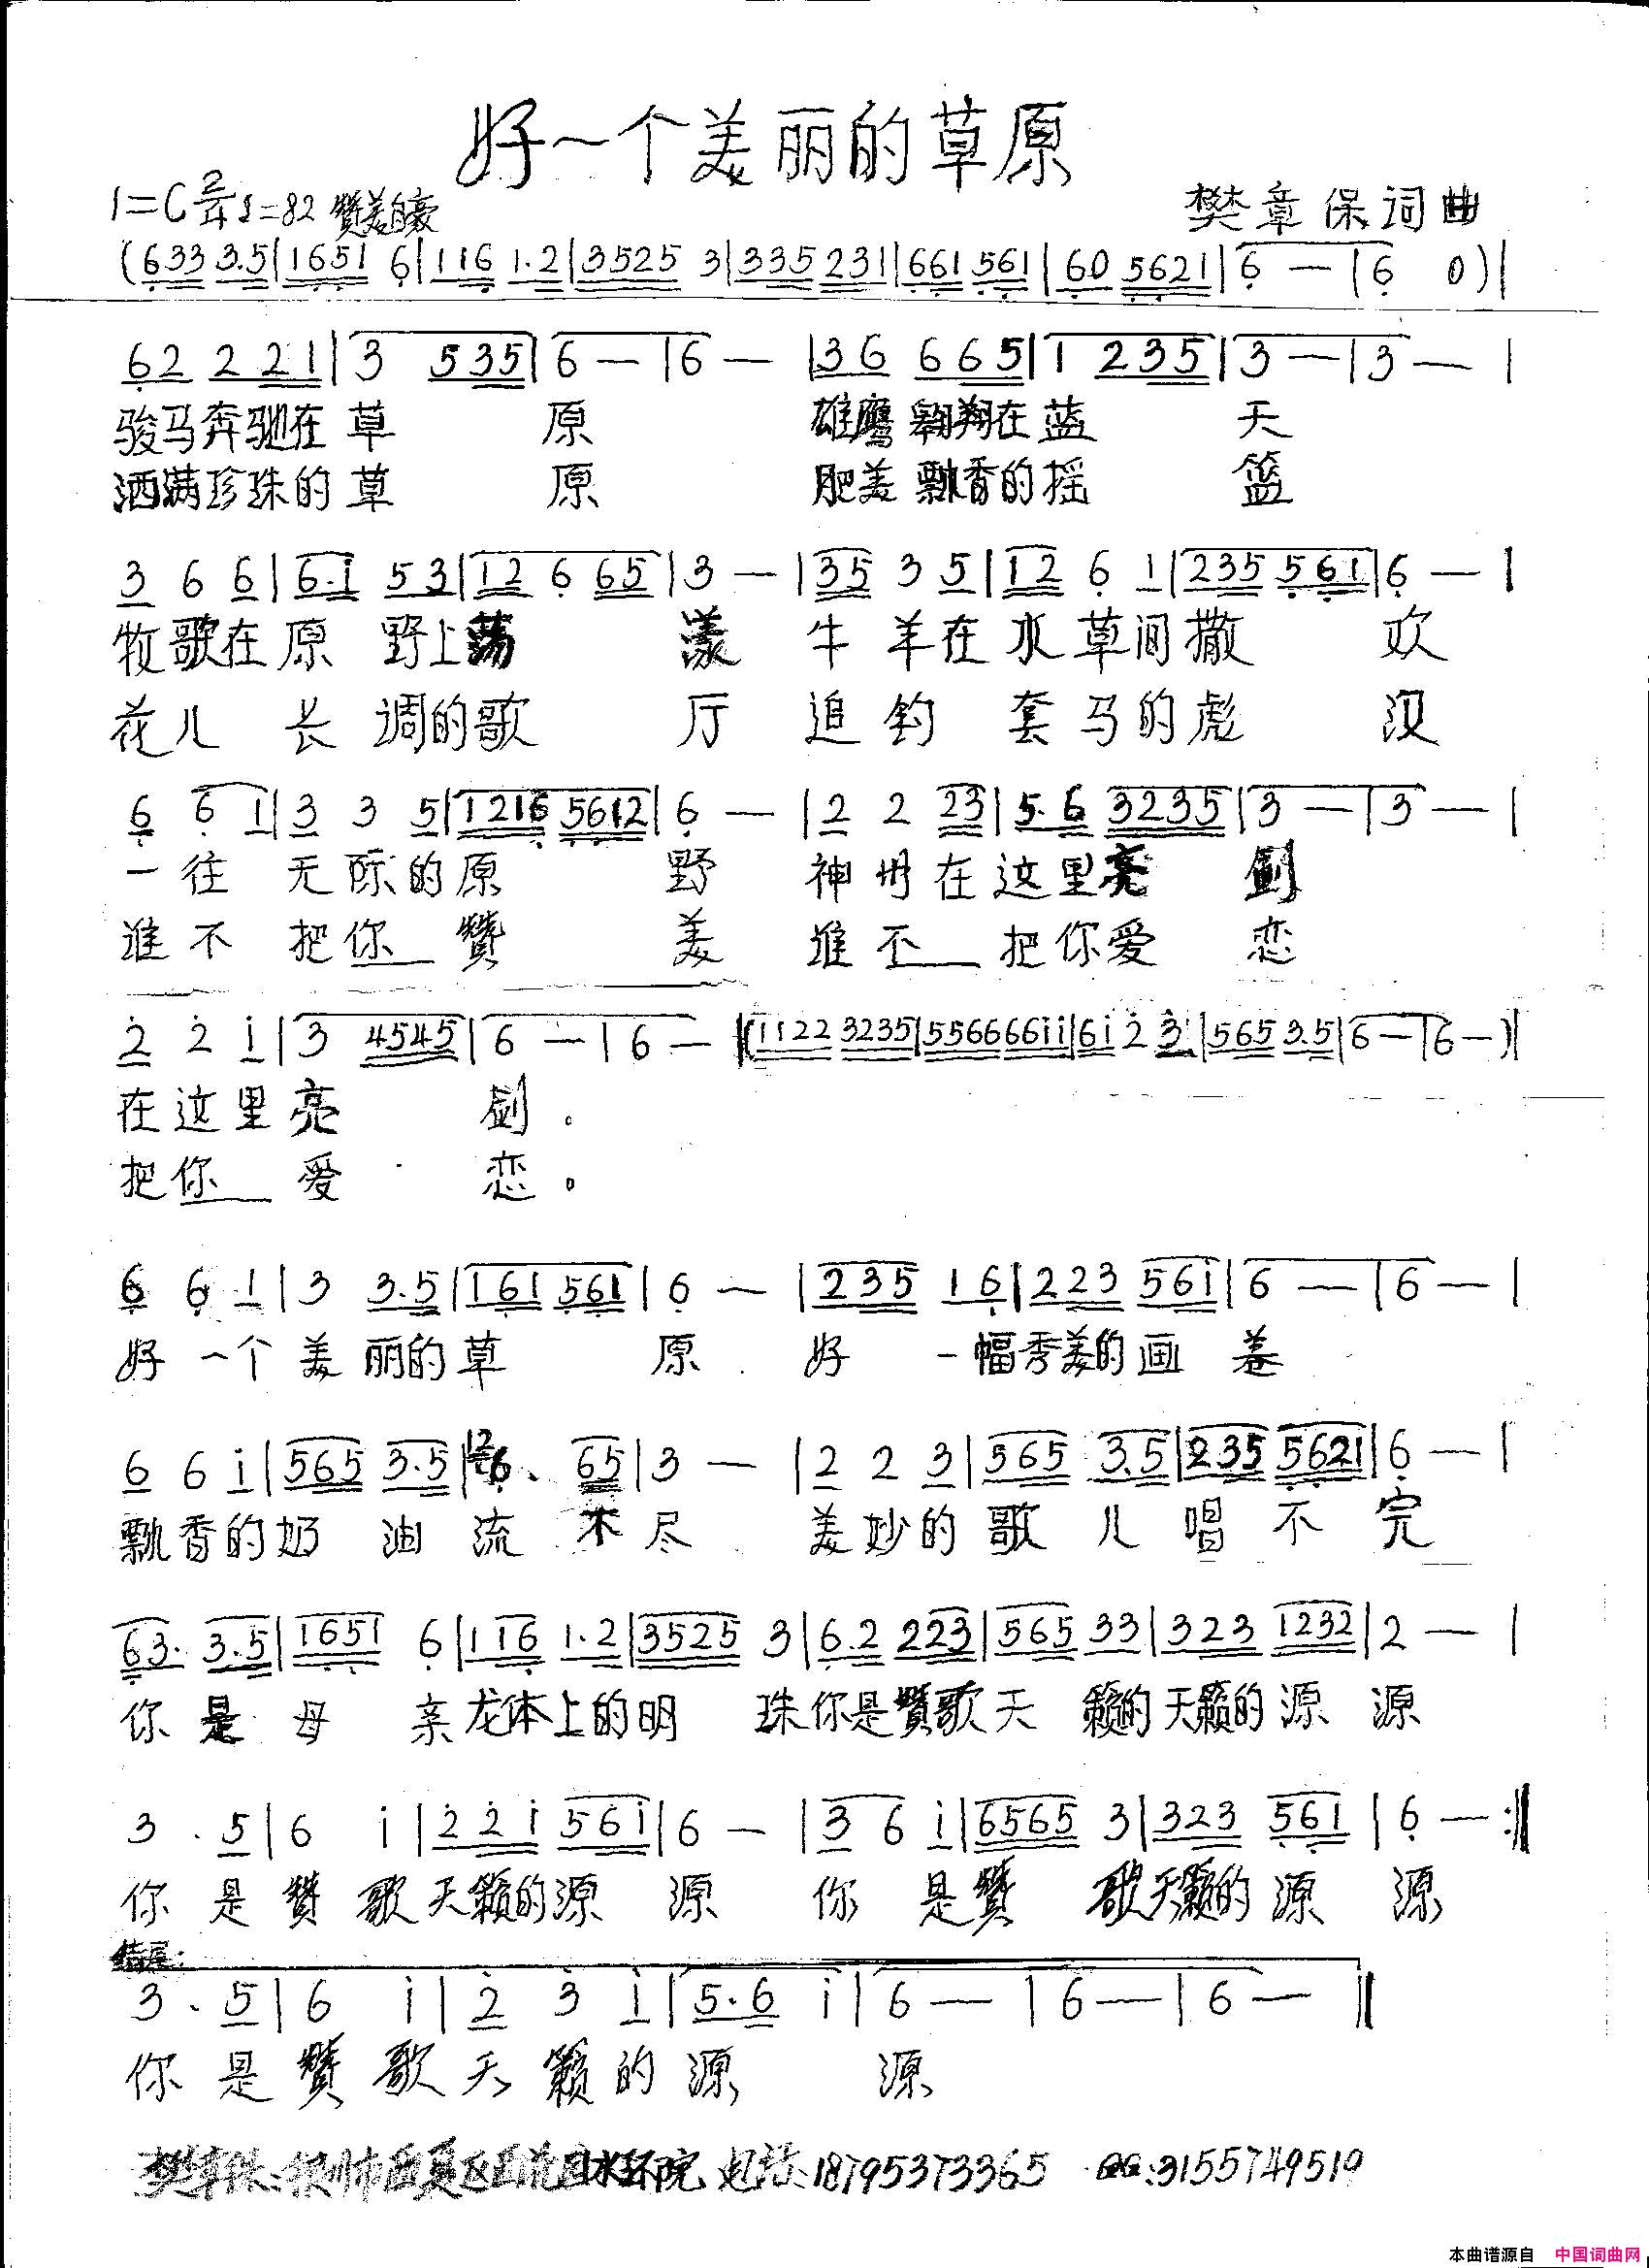 好一个美丽的草原
1=C 2/4 ♩=82 赞美自豪
樊章保词曲
(633 3.5|1651 6|116 1.2|3525 3|335 231|661 561|60 5621|6 —|6 0)|
62 221|3 535|6 —|6 — |36 665|1 235|3 —|3 — |
骏马奔驰在草 原 雄鹰翱翔在蓝 天
洒满珍珠的草 原 肥美飘香的摇 篮
3 6 6|6.i 53|12 6 65|3 — |35 3 5|12 6 1|235 561|6 — |
牧歌在原 野上荡 漾 牛羊在水草间撒 欢
花儿 长 调的歌 厅 追钓 套马的彪 汉
6 6 1|3 3 5|1216 5612|6 — |2 2 23|5.6 3235|3 —|3 — |
一往 无际的原 野 神州在这里亮 剑
谁不 把你 赞 美 谁不 把你爱 恋
2 2 i|3 4545|6 —|6 — ‖(1122 3235|556666ii|6i 2 3|565 3.5|6 —|6 —)‖
在这里亮 剑。
把你 爱 恋。
6 6 1|3 3.5|161 561|6 — |235 16|223 56i|6 —|6 — |
好 一个美丽的草 原 好 一幅秀美的画 卷
6 6 i|565 3.5|6. 65|3 — |2 2 3|565 3.5|235 5621|6 — |
飘香的奶 油 流 不 尽 美妙的歌 儿 唱 不 完
63. 3.5|1651 6|116 1.2|3525 3|6.2 223|565 33|323 1232|2 — |
你 是 母 亲 龙体上的明 珠你是赞歌天 籁的天籁的源 源
3 . 5|6 i|22i 56i|6 — |3 6 i|6565 3|323 561|6 — :‖
你 是 赞 歌天籁的源 源 你 是赞 歌天籁的源 源
结尾:
3 . 5|6 i|2 3 i|5.6 i|6 —|6 —|6 — ‖
你 是 赞 歌 天 籁 的 源 源
樊章保: 电话:18795373365 QQ:3155749519
本曲谱源自 中国词曲网